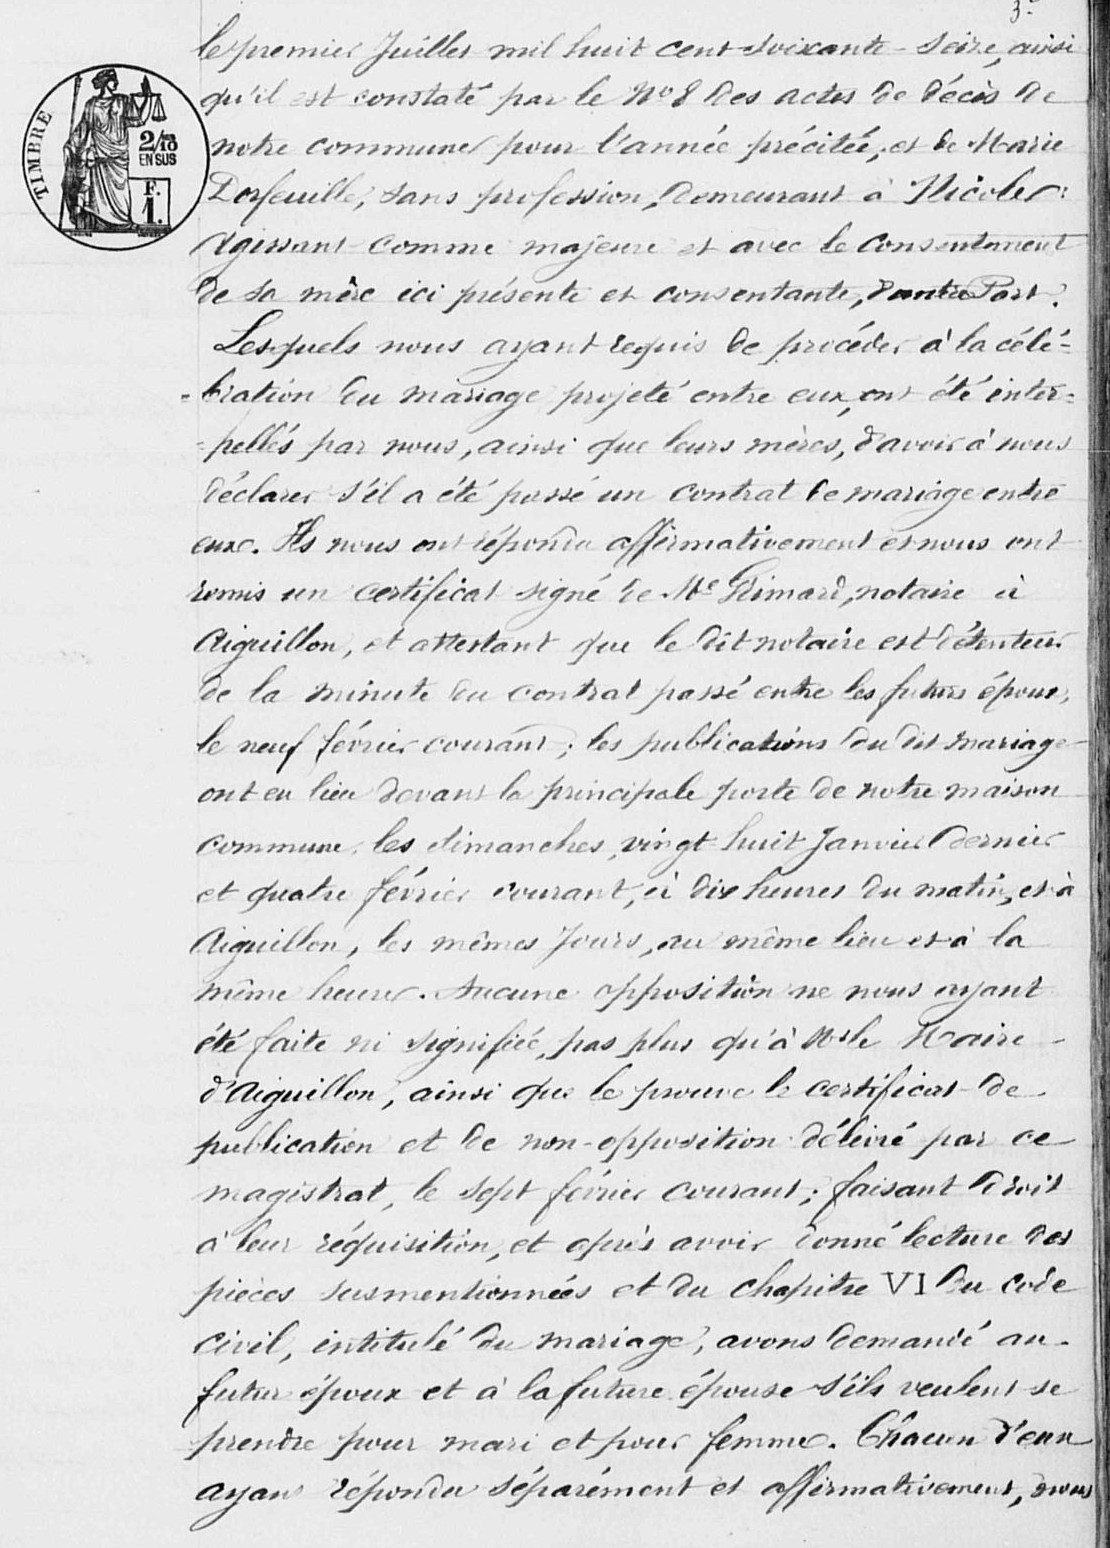 3e
le premier Juillet mil huit cent soixante-seize, ainsi
qu'il est constaté par le No 8 des actes de décès de
notre commune pour l'année précitée, et de Marie
Dorfeuille, sans profession, demeurant à Nicole:
Agissant comme majeure et avec le consentement
de sa mère ici présente et consentante, d'autre Part.
Lesquels nous ayant requis de procéder à la célé-
=bration du mariage projeté entre eux, ont été inter=
=pellés par nous, ainsi que leurs mères, d'avoir à nous
déclarer s'il a été passé un contrat de mariage entre
eux. Ils nous ont répondu affirmativement et nous ont
remis un certificat signé de Me Grimard, notaire à
Aiguillon, et attestant que le dit notaire est détenteur
de la minute du contrat passé entre les futurs époux,
le neuf février courant; les publications du dit mariage
ont eu lieu devant la principale porte de notre maison
commune, les dimanches, vingt huit Janvier dernier
et quatre février courant, à dix heures du matin, et à
Aiguillon, les mêmes Jours, au même lieu et à la
même heure. Aucune opposition ne nous ayant
été faite ni signifiée, pas plus qu'à Mr le Maire
d'Aiguillon, ainsi que le prouve le certificat de
publication et de non-opposition délivré par ce
magistrat, le sept février courant; faisant droit
à leur réquisition, et après avoir donné lecture des
pièces susmentionnées et du chapitre VI du code
civil, intitulé du mariage, avons demandé au
futur époux et à la future épouse s'ils veulent se
prendre pour mari et pour femme. Chacun d'eux
ayant répondu séparément et affirmativement, nous
TIMBRE
2/10
EN SUS
F.
1.